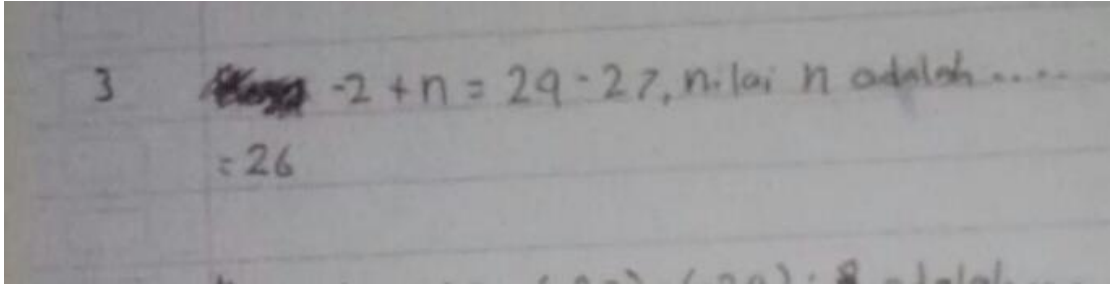 3 -2 + n = 29 - 27, nilai n adalah .....
= 26